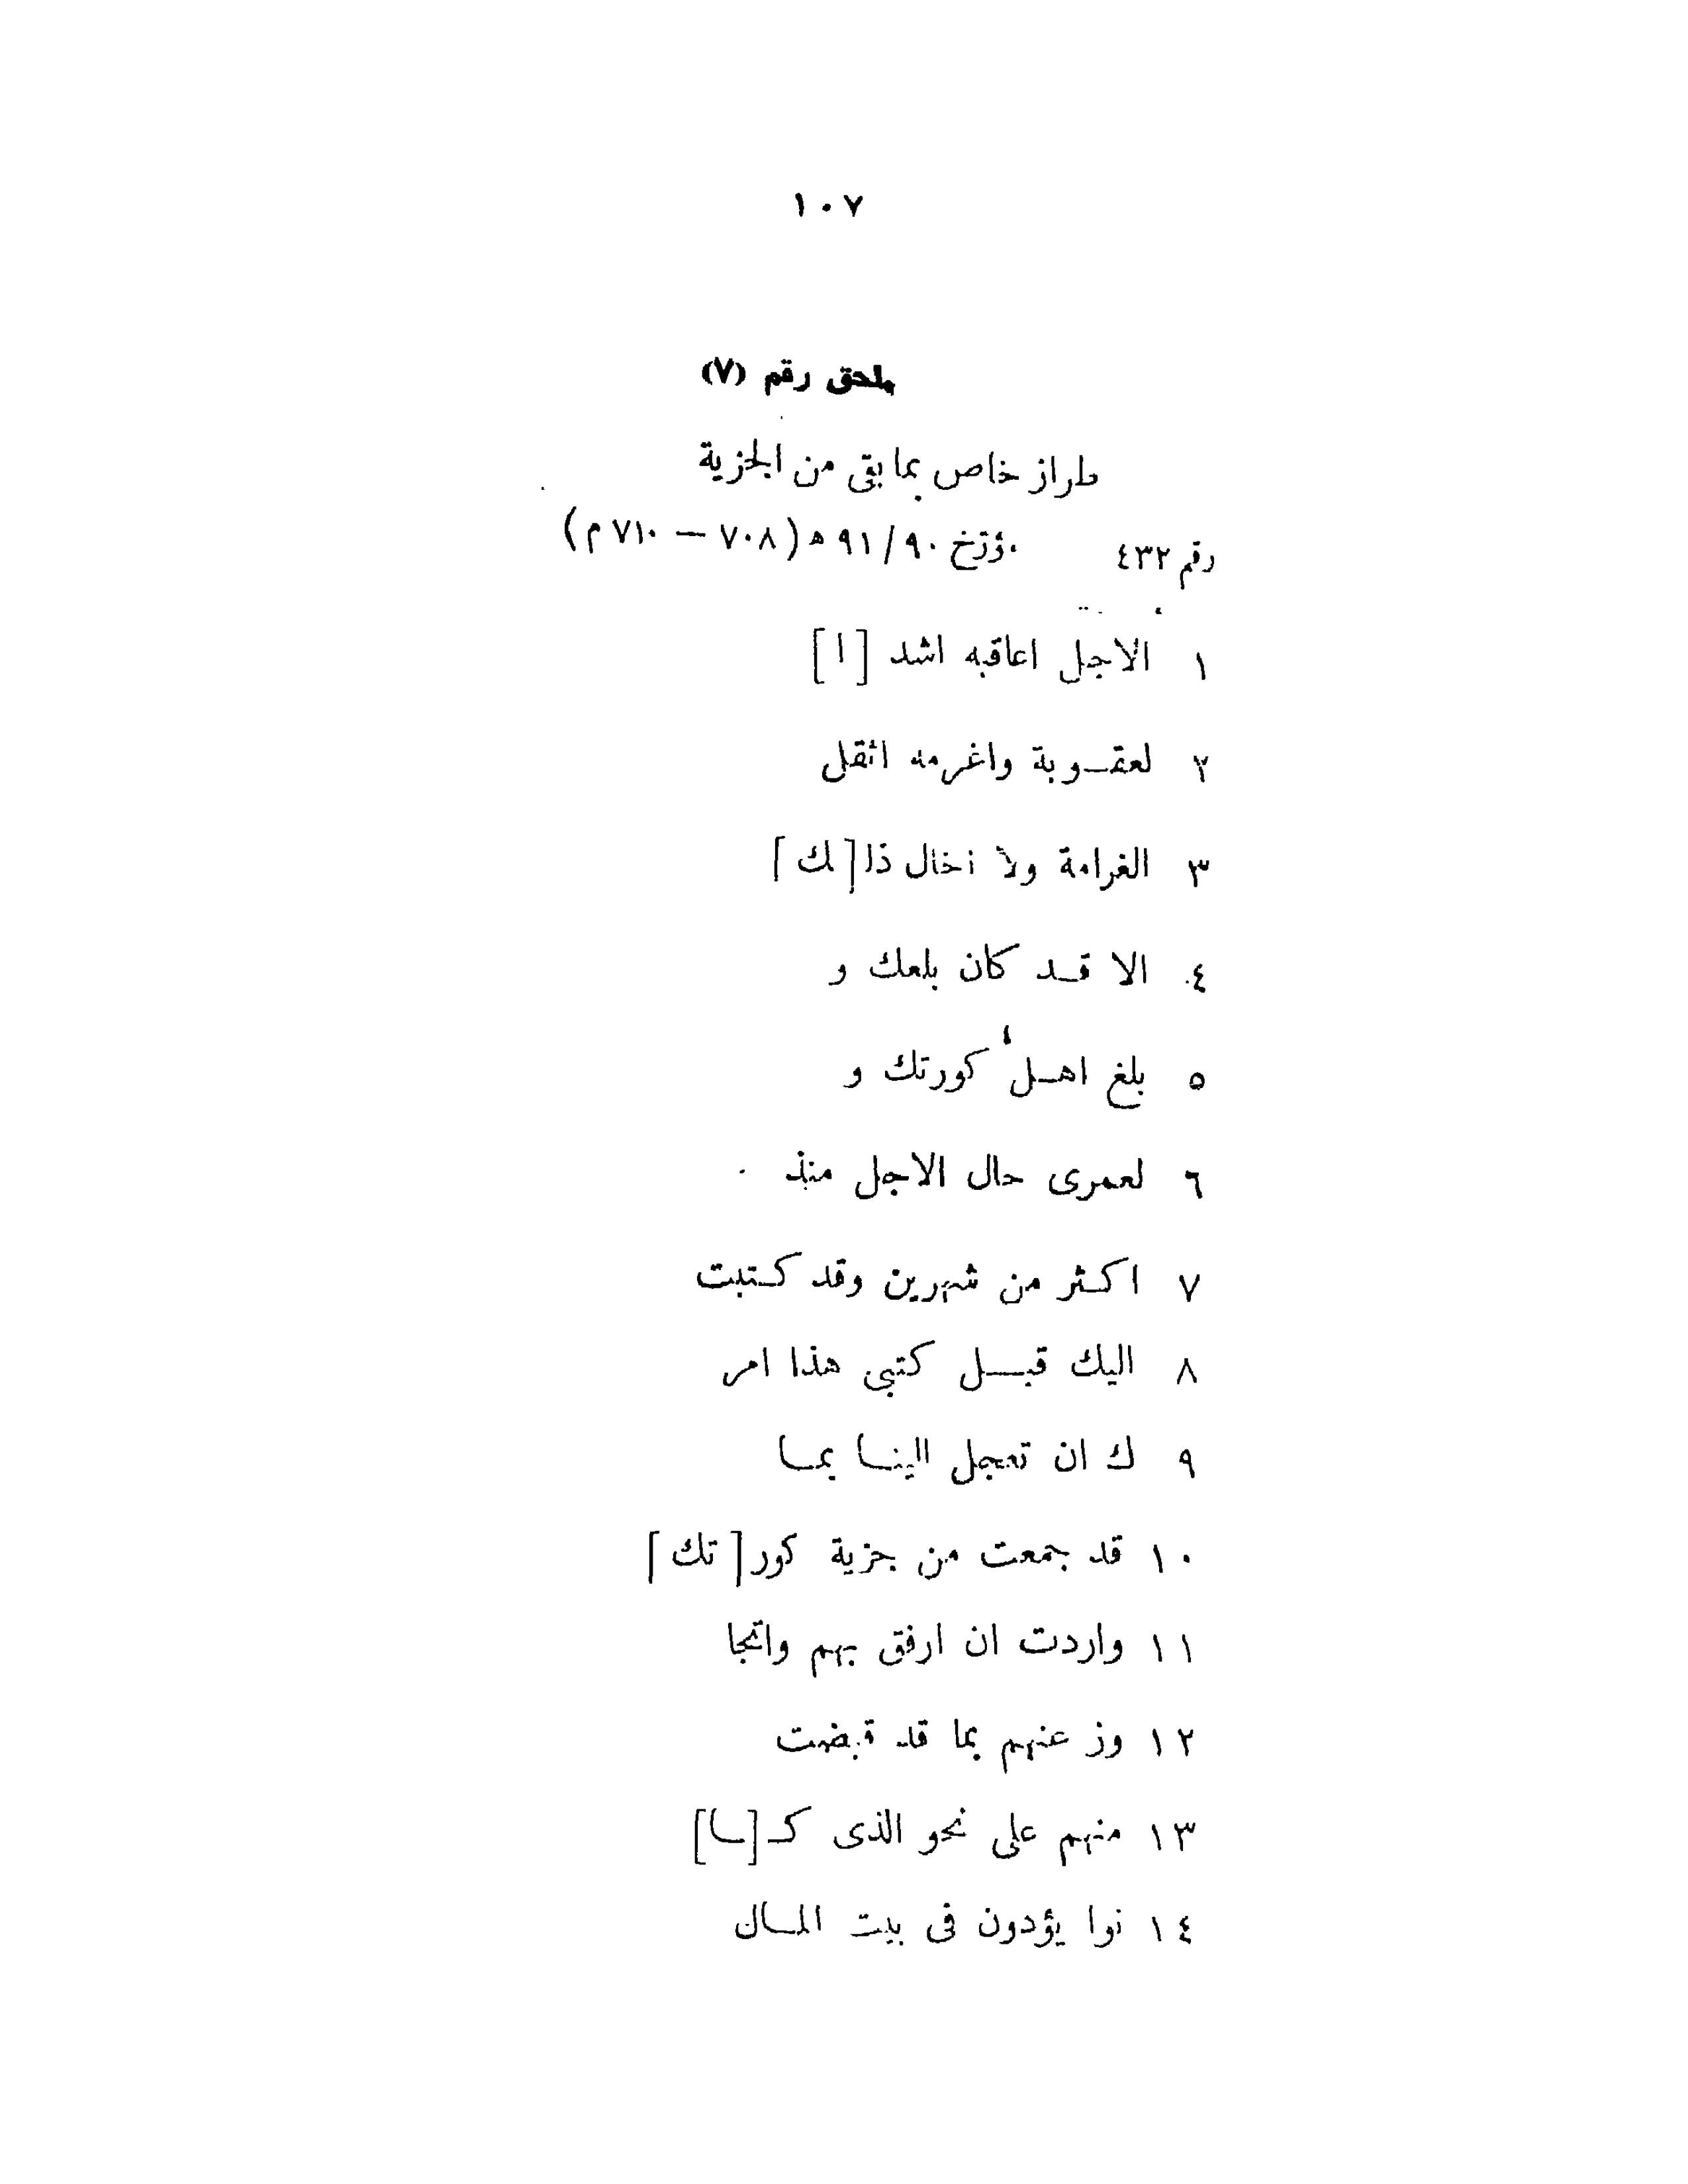 ١٠٧
ملحق رقم (٧)
طراز خاص بما بقى من الجزية
رقم ٤٣٢ مؤرخ ٩٠/ ٩١ ه (٧٠٨ — ٧١٠ م)
١ الاجل اعاقبه اشد [ ا ]
٢ لعقـوبة واغرمه اثقل
٣ الغرامة ولا اخال ذا[ لك ]
٤ الا قـد كان بلعك و
٥ بلغ اهـل كورتك و
٦ لعمرى حال الاجل منذ
٧ اكـثر من شهرين وقد كـتبت
٨ اليك قبـل كتبى هذا امر
٩ ك ان تعجل الينـا بمـا
١٠ قد جمعت من جزية كور[ تك ]
١١ واردت ان ارفق بهم واتجا
١٢ وز عنهم بما قد قبضت
١٣ منهم على نحو الذى كـ[ـا]
١٤ نوا يؤدون فى بيت المـال